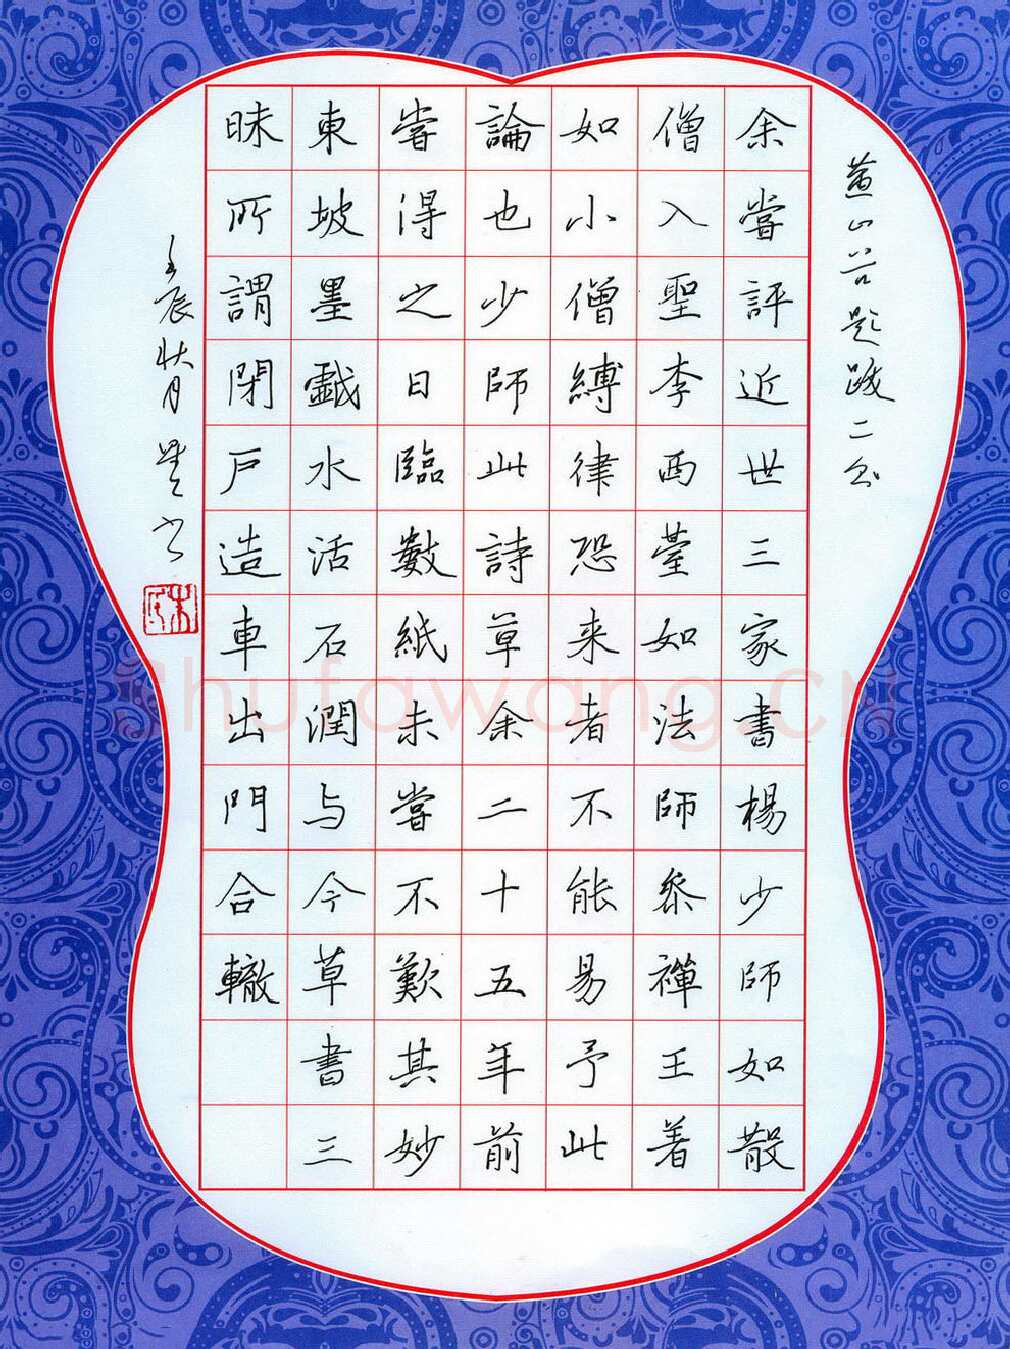 黄山谷题跋二
余嘗評近世三家書楊少師如散
僧入聖李西臺如法師叅禪王著
如小僧縛律恐来者不能易予此
論也少師此詩草余二十五年前
嘗得之日臨數紙未嘗不歎其妙
東坡墨戲水活石潤与今草書三
昧所謂閉戶造車出門合轍
壬辰秋月 书
Shufawang.cn